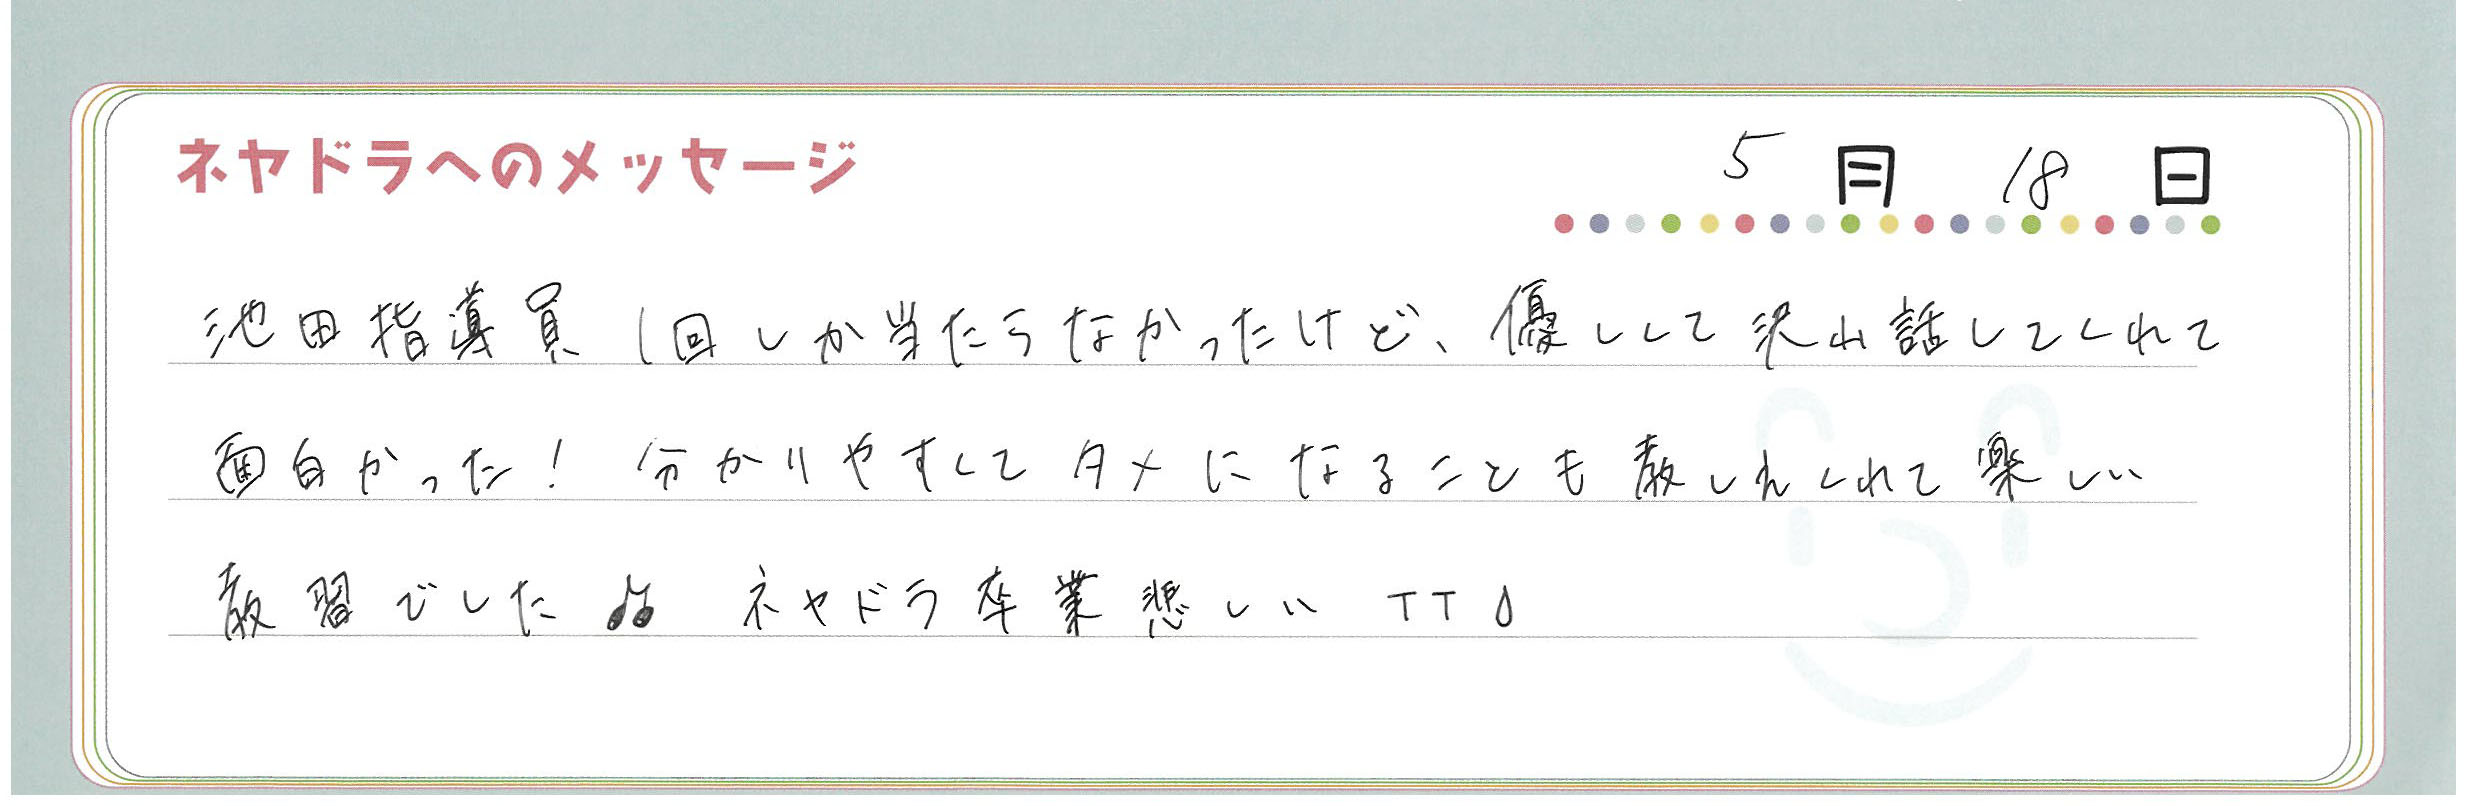 ネヤドラへのメッセージ
5月18日
池田指導員1回しか当たらなかったけど、優しくて沢山話してくれて
面白かった！分かりやすくてタメになることも教しえくれて楽しい
教習でした♫ ネヤドラ卒業悲しい TT